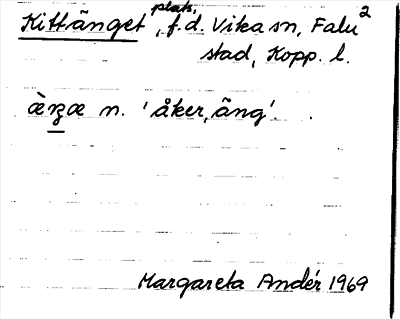 Kittänget plats, f.d. Vika sn, Falu 2
stad, Kopp. l.
n. 'åker, äng'.
Margareta Andér 1969